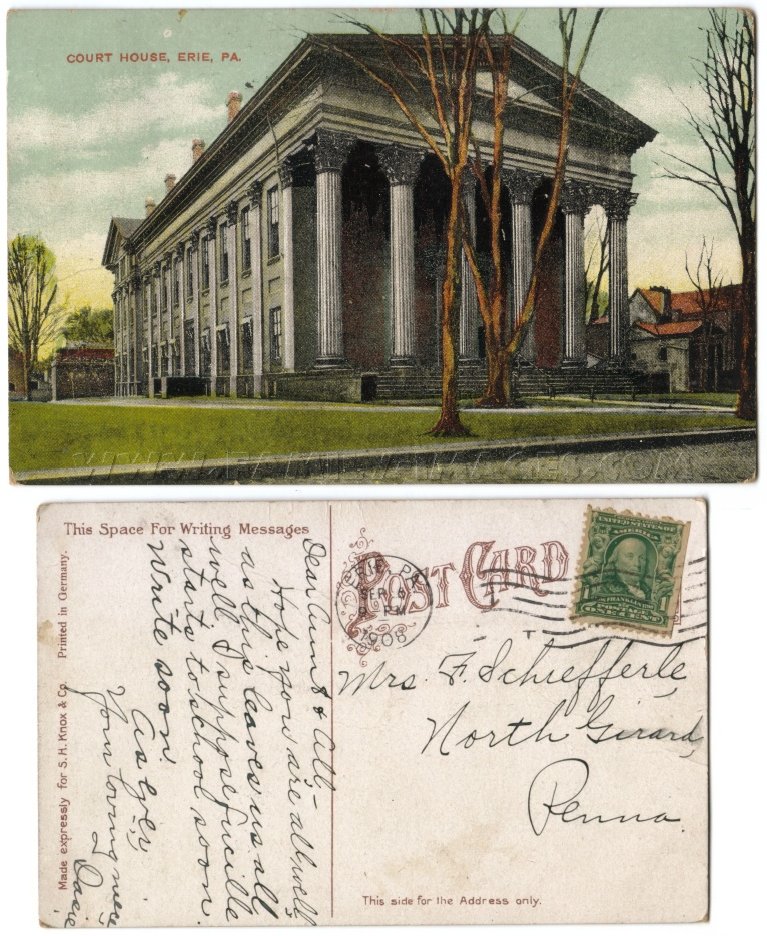 COURT HOUSE, ERIE, PA.
WWW.FAMILYIMAGES.COM
This Space For Writing Messages
POST CARD
ERIE, PA.
SEP 6
PM
1908
UNITED STATES OF AMERICA
FRANKLIN
POSTAGE
ONE CENT
Dear Aunt & All -
Hope you are all well
as this leaves us all
well. I suppose Lucille
starts to school soon.
Write soon.
As ever
Your loving niece
Mrs. F. Schiefferle,
North Girard,
Penna.
This side for the Address only.
Made expressly for S. H. Knox & Co. Printed in Germany.